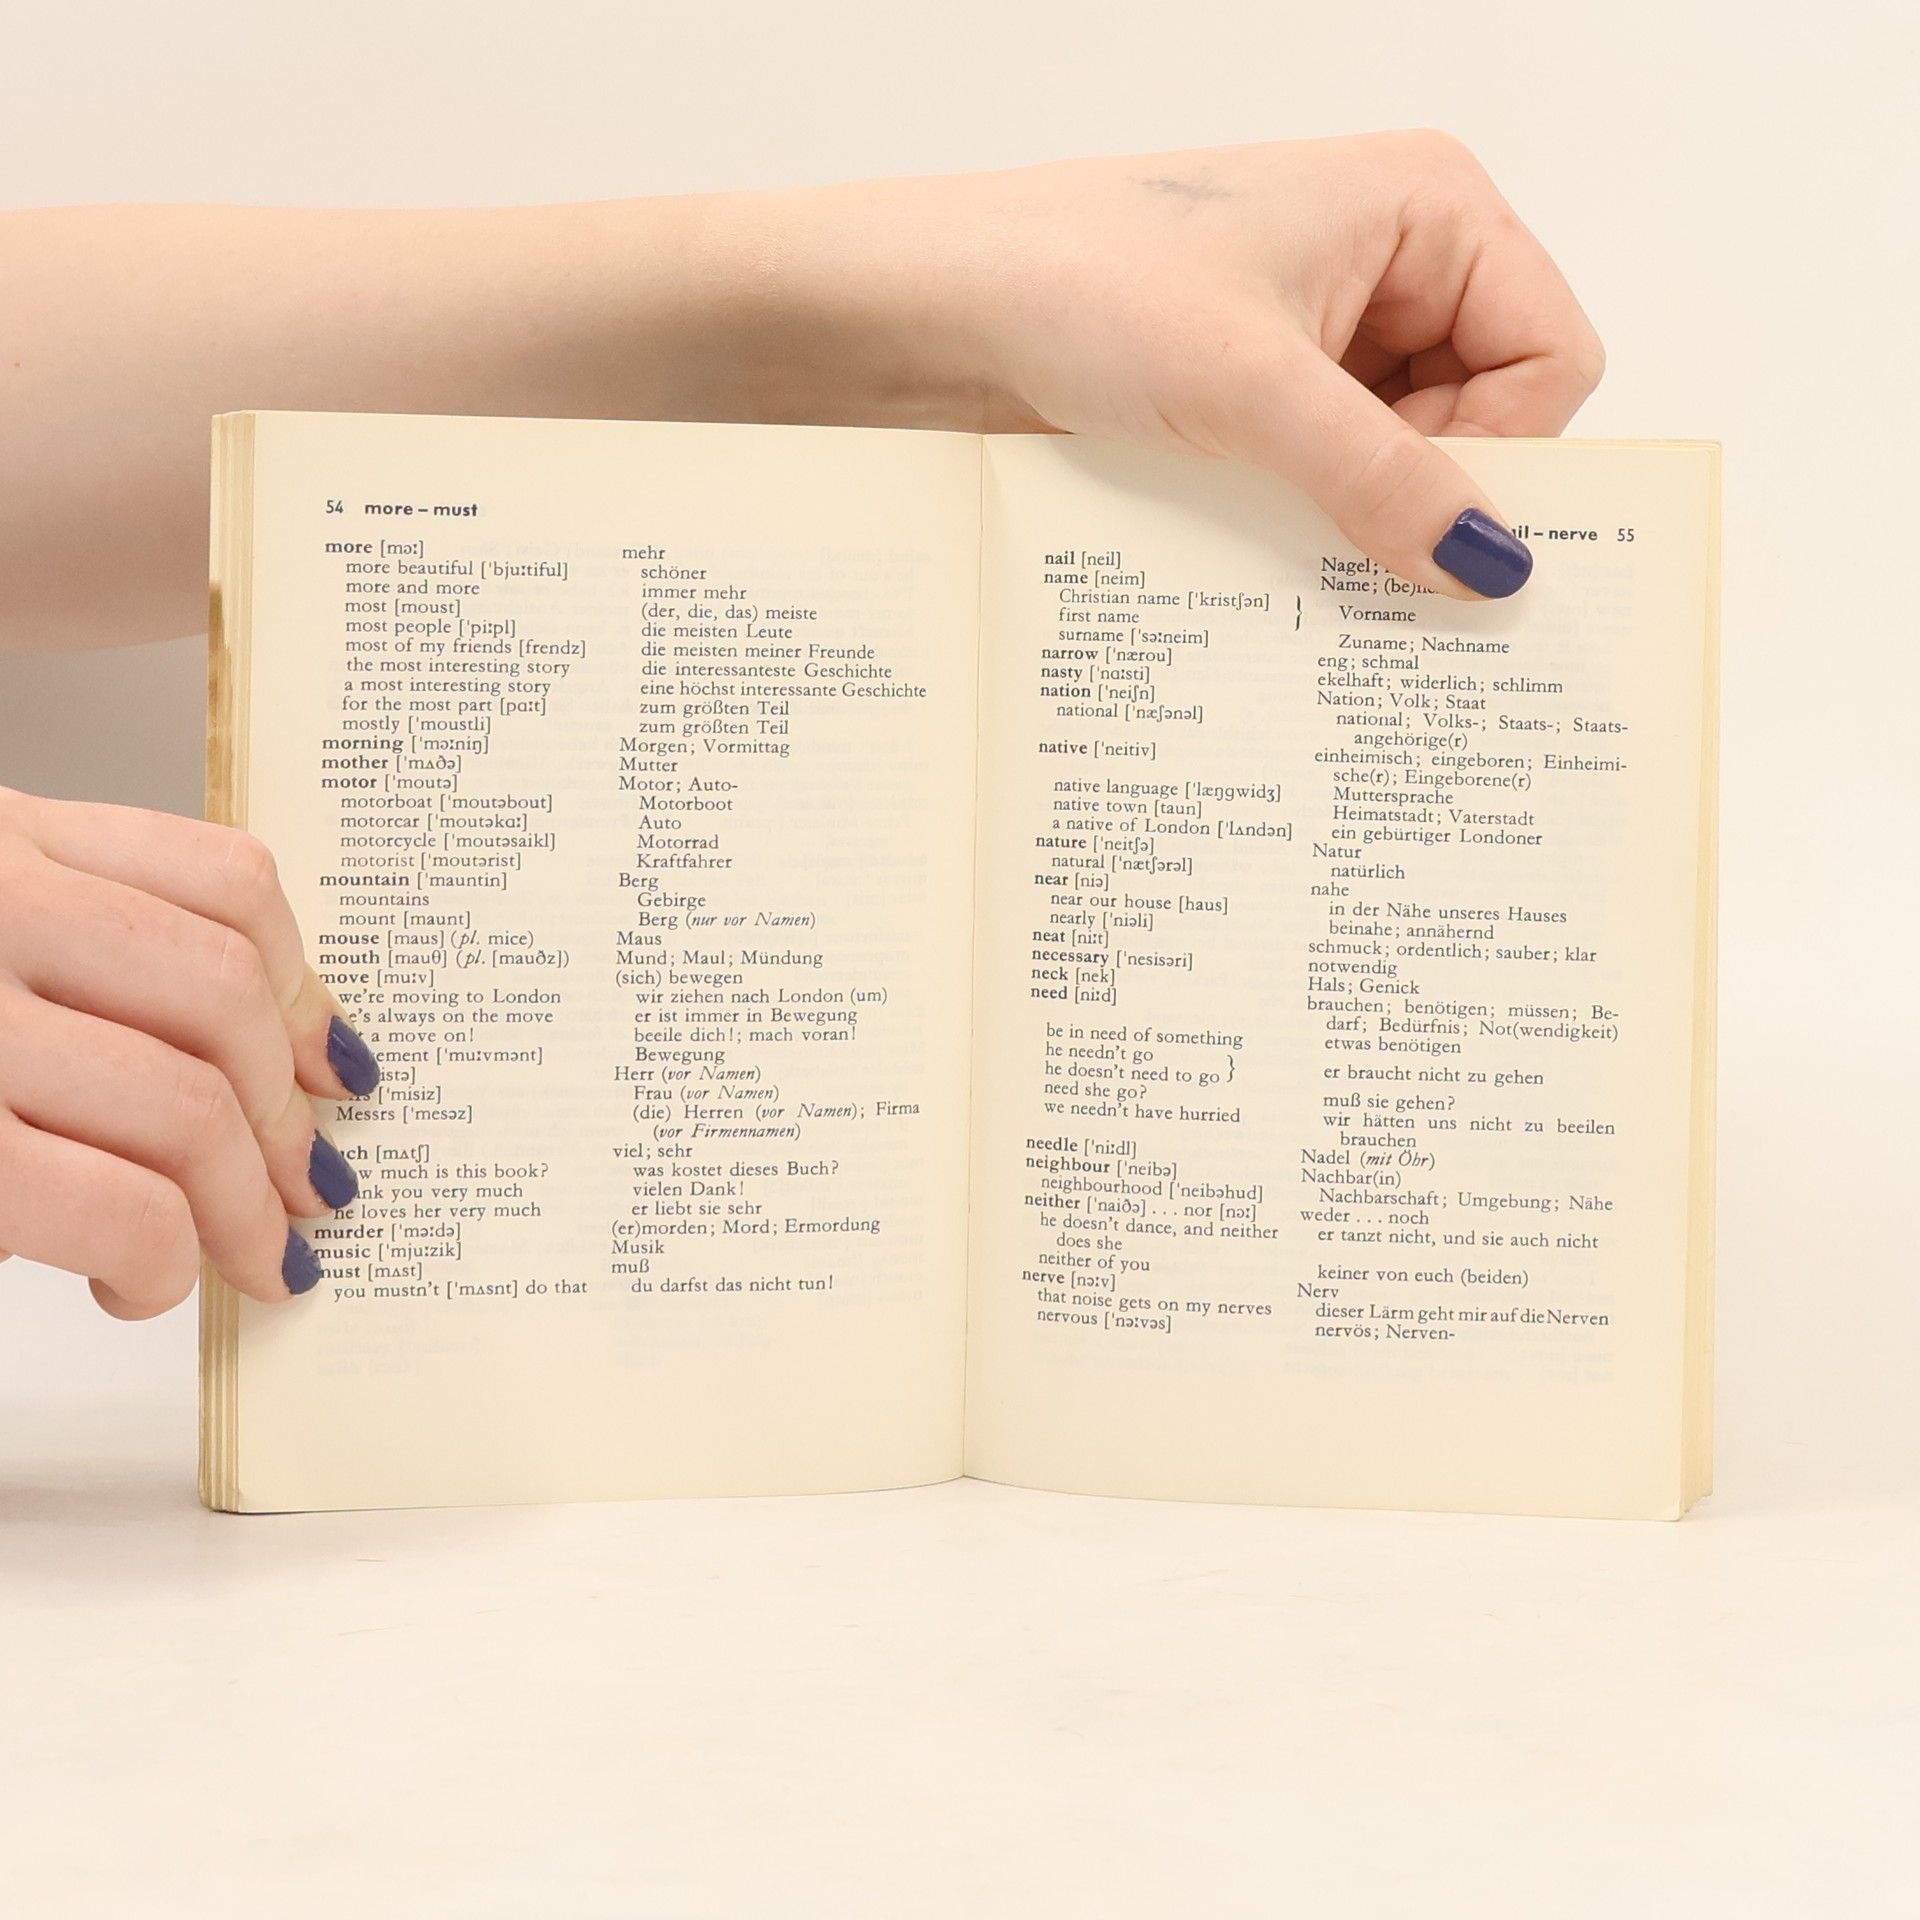 54 more – must
more [mɔː] mehr
more beautiful ['bjuːtiful] schöner
more and more immer mehr
most [moust] (der, die, das) meiste
most people ['piːpl] die meisten Leute
most of my friends [frendz] die meisten meiner Freunde
the most interesting story die interessanteste Geschichte
a most interesting story eine höchst interessante Geschichte
for the most part [pɑːt] zum größten Teil
mostly ['moustli] zum größten Teil
morning ['mɔːniŋ] Morgen; Vormittag
mother ['mʌðə] Mutter
motor ['moutə] Motor; Auto-
motorboat ['moutəbout] Motorboot
motorcar ['moutəkɑː] Auto
motorcycle ['moutəsaikl] Motorrad
motorist ['moutərist] Kraftfahrer
mountain ['mauntin] Berg
mountains Gebirge
mount [maunt] Berg (nur vor Namen)
mouse [maus] (pl. mice) Maus
mouth [mauθ] (pl. [mauðz]) Mund; Maul; Mündung
move [muːv] (sich) bewegen
we're moving to London wir ziehen nach London (um)
always on the move er ist immer in Bewegung
a move on! beeile dich!; mach voran!
['muːvmənt] Bewegung
Herr (vor Namen)
['misiz] Frau (vor Namen)
Messrs ['mesəz] (die) Herren (vor Namen); Firma
(vor Firmennamen)
[mʌtʃ] viel; sehr
much is this book? was kostet dieses Buch?
you very much vielen Dank!
he loves her very much er liebt sie sehr
murder ['məːdə] (er)morden; Mord; Ermordung
music ['mjuːzik] Musik
must [mʌst] muß
you mustn't ['mʌsnt] do that du darfst das nicht tun!
– nerve 55
nail [neil] Nagel;
name [neim] Name;
Christian name ['kristʃən] } Vorname
first name
surname ['səːneim] Zuname; Nachname
narrow ['nærou] eng; schmal
nasty ['nɑːsti] ekelhaft; widerlich; schlimm
nation ['neiʃn] Nation; Volk; Staat
national ['næʃənəl] national; Volks-; Staats-; Staats-
angehörige(r)
native ['neitiv] einheimisch; eingeboren; Einheimi-
sche(r); Eingeborene(r)
native language ['læŋgwidʒ] Muttersprache
native town [taun] Heimatstadt; Vaterstadt
a native of London ['lʌndən] ein gebürtiger Londoner
nature ['neitʃə] Natur
natural ['nætʃərəl] natürlich
near [niə] nahe
near our house [haus] in der Nähe unseres Hauses
nearly ['niəli] beinahe; annähernd
neat [niːt] schmuck; ordentlich; sauber; klar
necessary ['nesisəri] notwendig
neck [nek] Hals; Genick
need [niːd] brauchen; benötigen; müssen; Be-
darf; Bedürfnis; Not(wendigkeit)
be in need of something etwas benötigen
he needn't go
he doesn't need to go } er braucht nicht zu gehen
need she go? muß sie gehen?
we needn't have hurried wir hätten uns nicht zu beeilen
brauchen
needle ['niːdl] Nadel (mit Öhr)
neighbour ['neibə] Nachbar(in)
neighbourhood ['neibəhud] Nachbarschaft; Umgebung; Nähe
neither ['naiðə] . . . nor [nɔː] weder . . . noch
he doesn't dance, and neither er tanzt nicht, und sie auch nicht
does she
neither of you keiner von euch (beiden)
nerve [nəːv] Nerv
that noise gets on my nerves dieser Lärm geht mir auf die Nerven
nervous ['nəːvəs] nervös; Nerven-